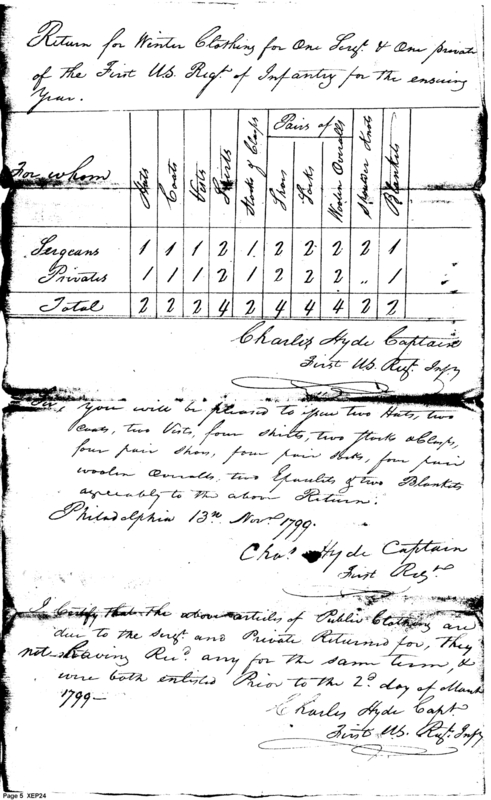 Return for Winter Clothing for One Sergt & One private
of the First US. Regt of Infantry for the ensuing
Year.
For whom Hats Coats Vests Shirts Stocks & Clasps Pairs of Shoes Socks Woolen Overalls Shoulder Knots Blankets
Sergeans 1 1 1 2 1 2 2 2 2 1
Privates 1 1 1 2 1 2 2 2 " 1
Total 2 2 2 4 2 4 4 4 2 2
Charles Hyde Captain
First US. Regt. Infy
Sir, you will be pleased to issue two Hats, two
coats, two Vists, four shirts, two stocks & Clasps,
four pair shoes, four pair socks, four pair
woolen overalls, two Epaulits & two Blankets
agreeably to the above Return.
Philadelphia 13th Novr 1799.
Chas. Hyde Captain
First Regt.
I Certify that the above articles of Public Clothing are
due to the Sergt. and Private Returned for, they
not having Recd. any for the same term, &
were both enlisted Prior to the 2d. day of March
1799—
Charles Hyde Capt.
First US. Regt. Infy
Page 5 XEP24